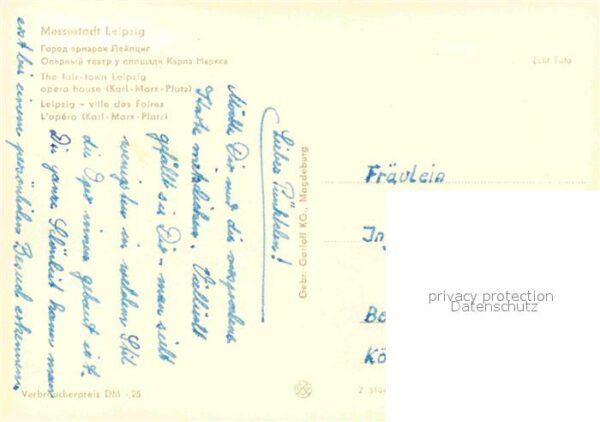 Messestadt Leipzig
Город ярмарок Лейпциг
Оперный театр у площади Карла Маркса
The fair-town Leipzig
opera house (Karl-Marx-Platz)
Leipzig - ville des Foires
L'opéra (Karl-Marx-Platz)
Echt Foto
Liebes Pünktchen!
Möchte Dir nur die versprochene
Karte mitschicken. Vielleicht
gefällt sie Dir - man sieht
wenigstens in welchem Stil
die Oper innen gebaut ist.
Die ganze Schönheit kann man
erst bei einem persönlichen Besuch erkennen.
Gebr. Garloff KG., Magdeburg
Fräulein
In
Be
Kö
privacy protection
Datenschutz
Verbraucherpreis DM -,25